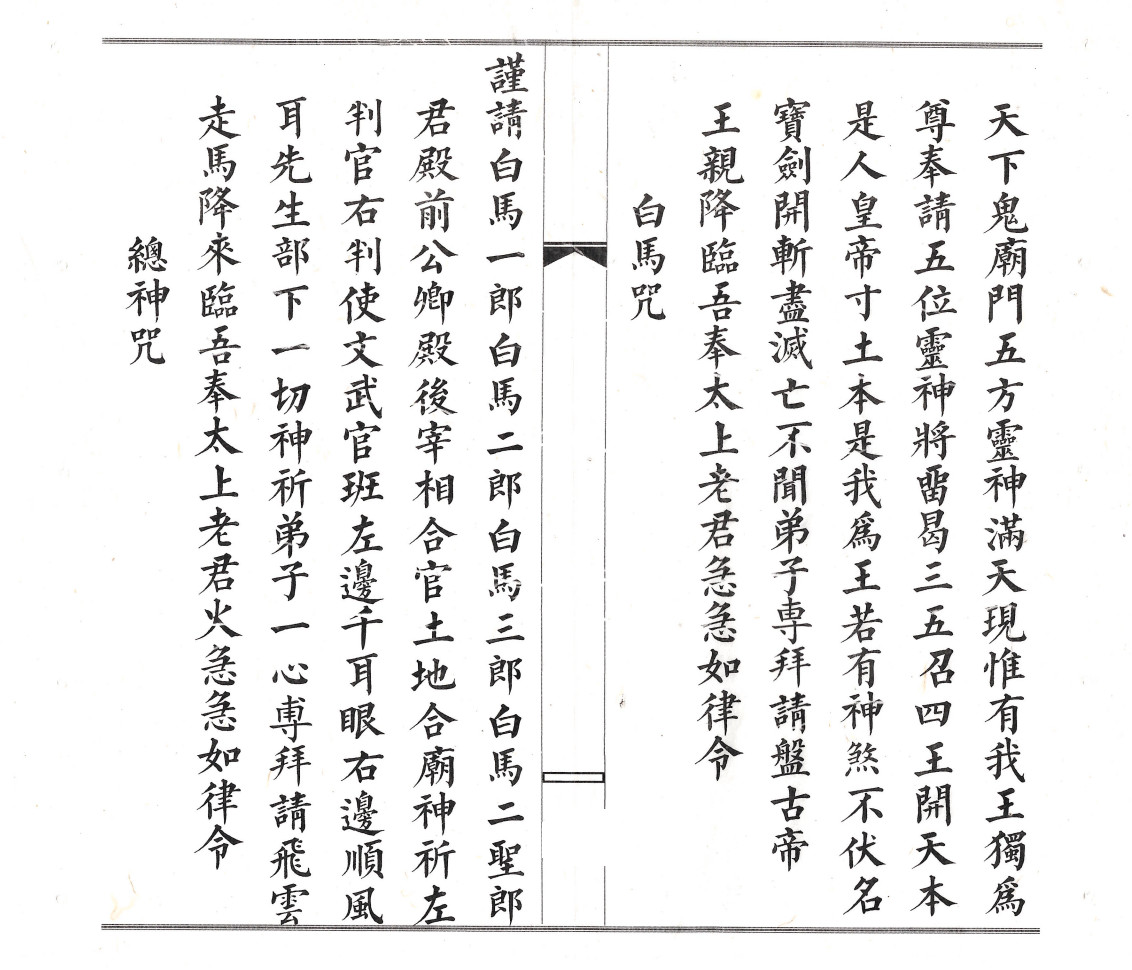 天下鬼廟門五方靈神滿天現惟有我王獨爲
尊奉請五位靈神將畱曷三五召四王開天本
是人皇帝寸土本是我爲王若有神煞不伏名
寶劍開斬盡滅亡不聞弟子専拜請盤古帝
王親降臨吾奉太上老君急急如律令
白馬咒
謹請白馬一郎白馬二郎白馬三郎白馬二聖郎
君殿前公卿殿後宰相合官土地合廟神祈左
判官右判使文武官班左邊千耳眼右邊順風
耳先生部下一切神祈弟子一心専拜請飛雲
走馬降來臨吾奉太上老君火急急如律令
總神咒